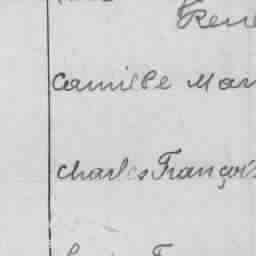 René
Camille Mar
Charles François